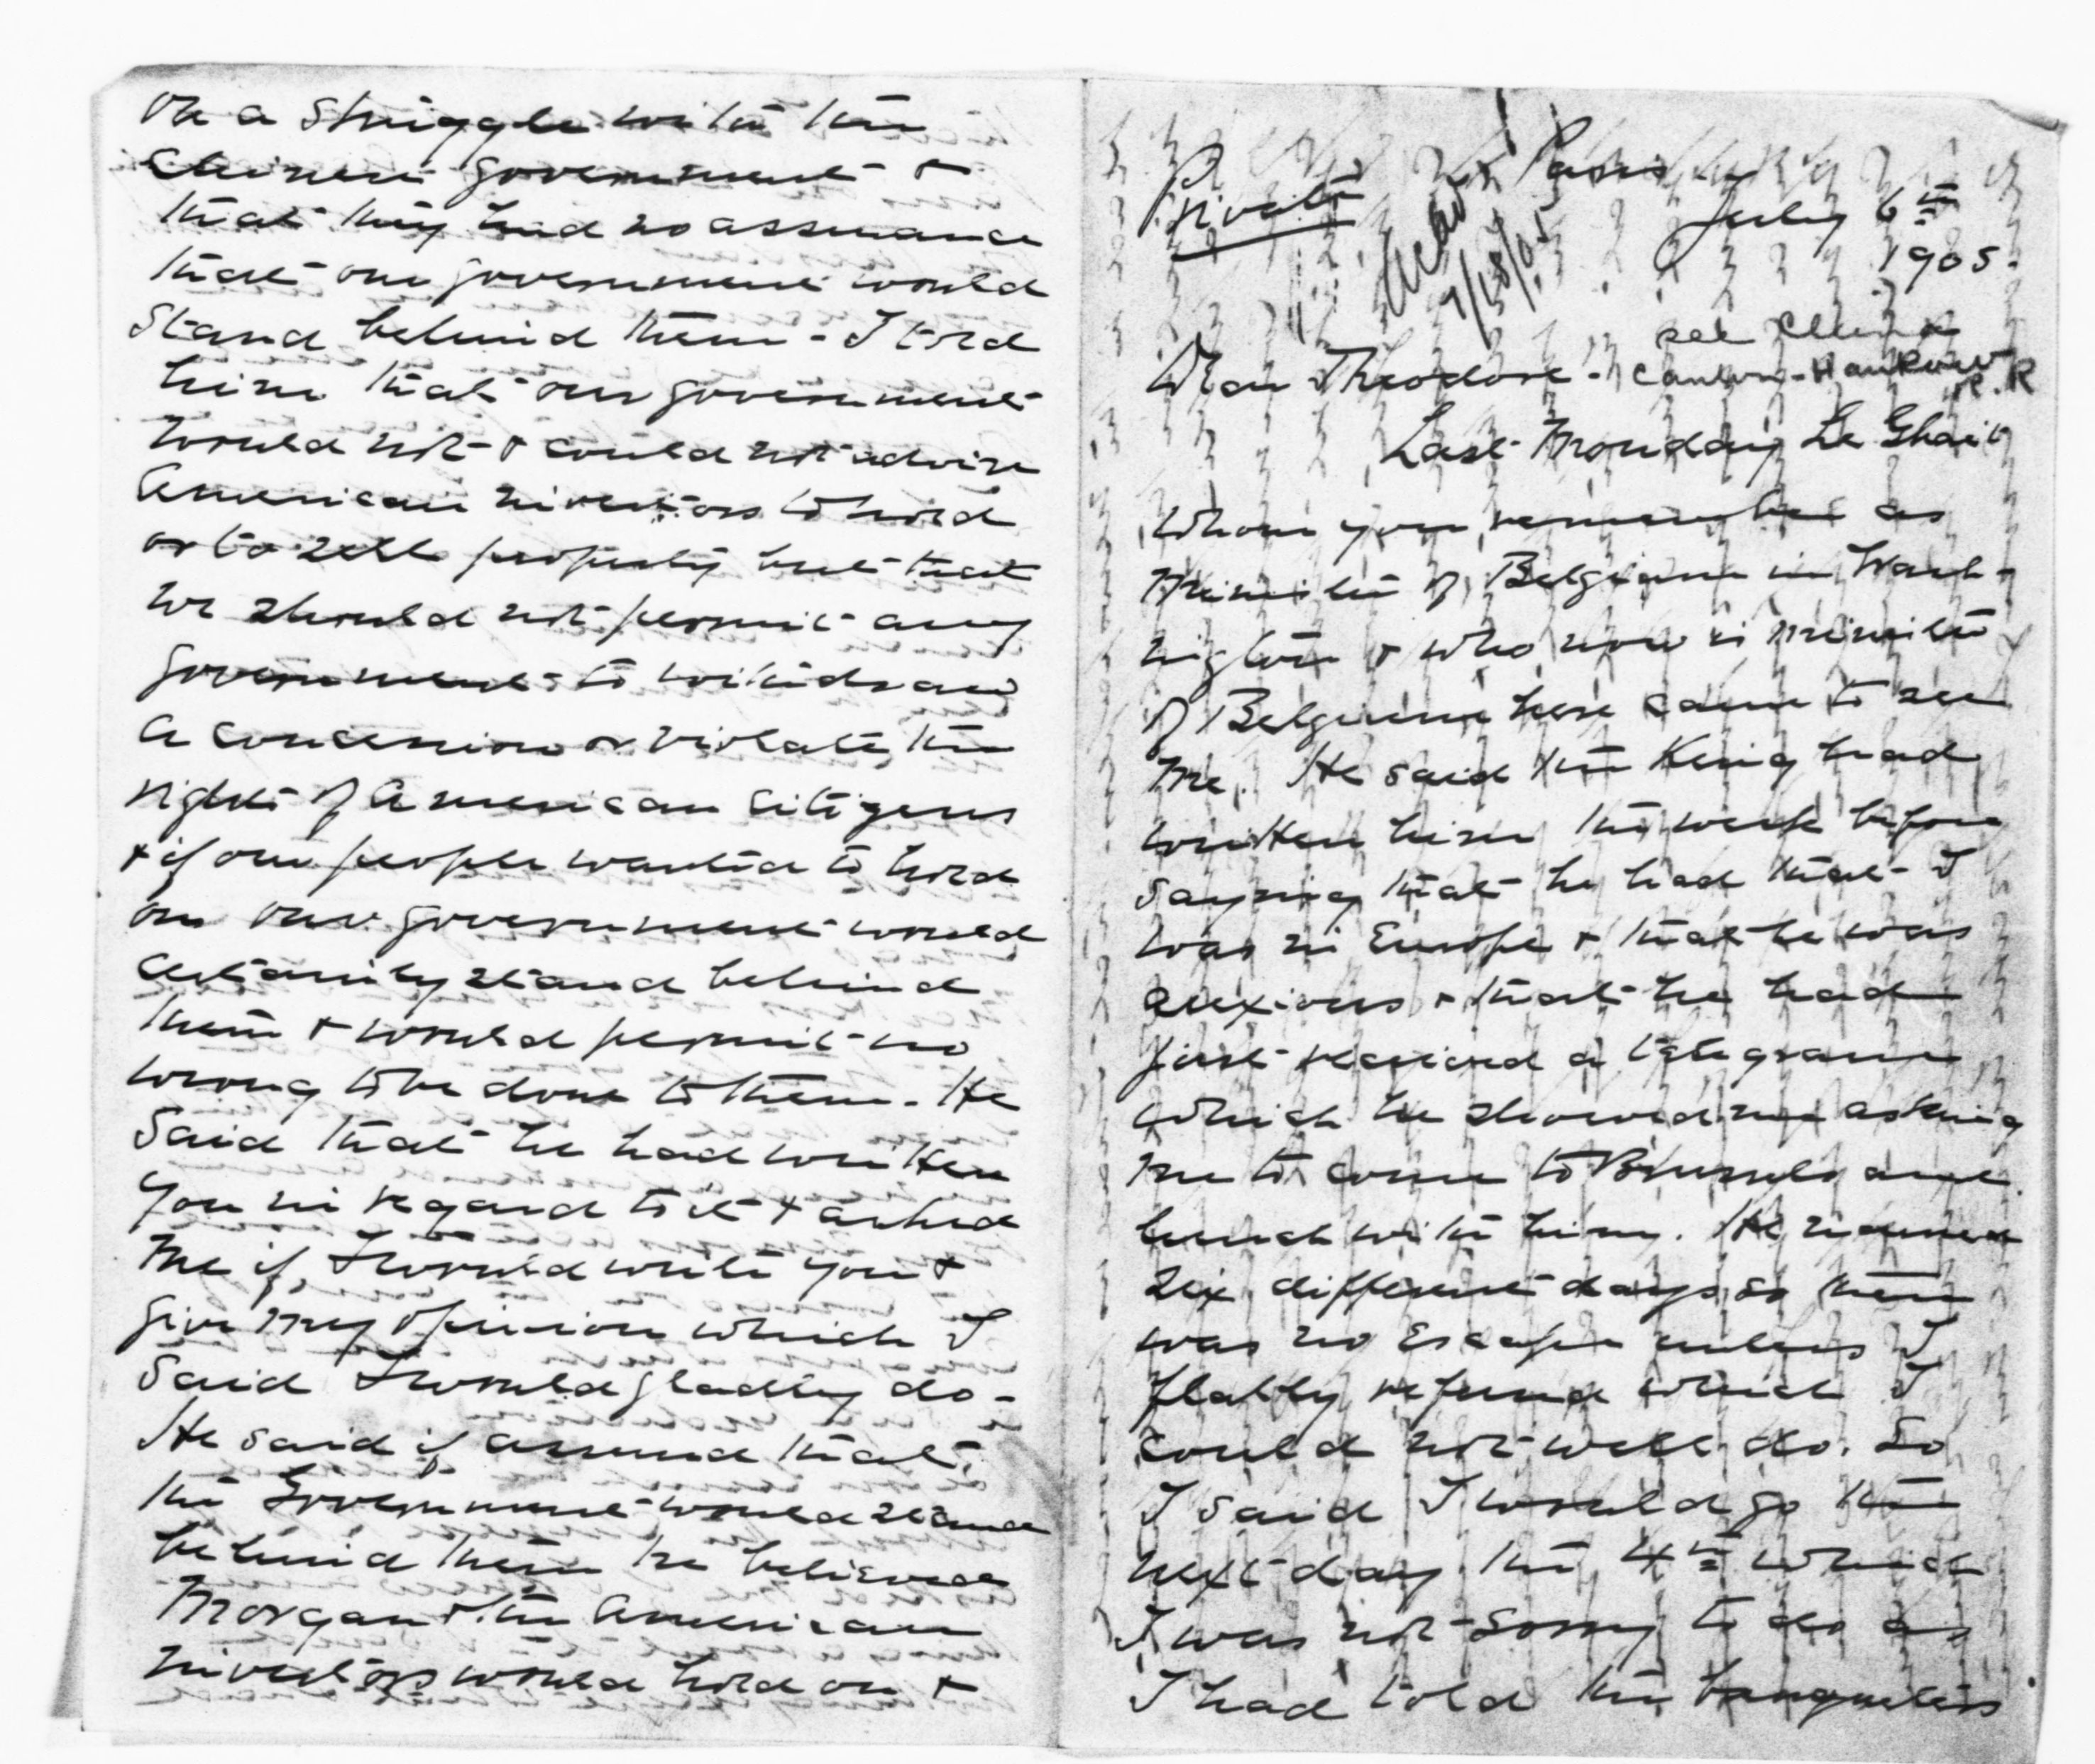 on a struggle with the
Chinese government &
that they had no assurance
that our government would
stand behind them - I told
him that our government
would not & could not advise
American investors to hold
or to sell property but that
we should not permit any
government to withdraw
a concession or violate the
rights of American citizens
& if our people wanted to hold
on our government would
certainly stand behind
them & would permit no
wrong to be done to them. He
said that he had written
you in regard to it & asked
me if I would write you &
give my opinion which I
said I would gladly do -
He said if assured that
the Government would stand
behind them he believed
Morgan & the American
investors would hold on &
Private
Paris
July 6th
1905.
7/18/05
see China
Canton-Hankow
R.R
Dear Theodore -
Last Monday Le Ghait
whom you remember as
Minister of Belgium in Wash-
ington & who now is minister
of Belgium here came to see
me. He said the King had
written him the week before
saying that he had that I
was in Europe & that he was
anxious & that he had
just received a telegram
which he showed me asking
me to come to Brussels and
lunch with him. He named
six different days so there
was no escape unless I
flatly refused which I
could not well do. So
I said I would go the
next day the 4th which
I was not sorry to do as
I had told the banqueters